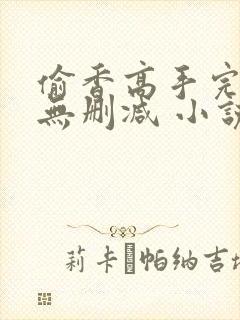 偷香高手完
無刪减 小說
莉卡 帕納吉